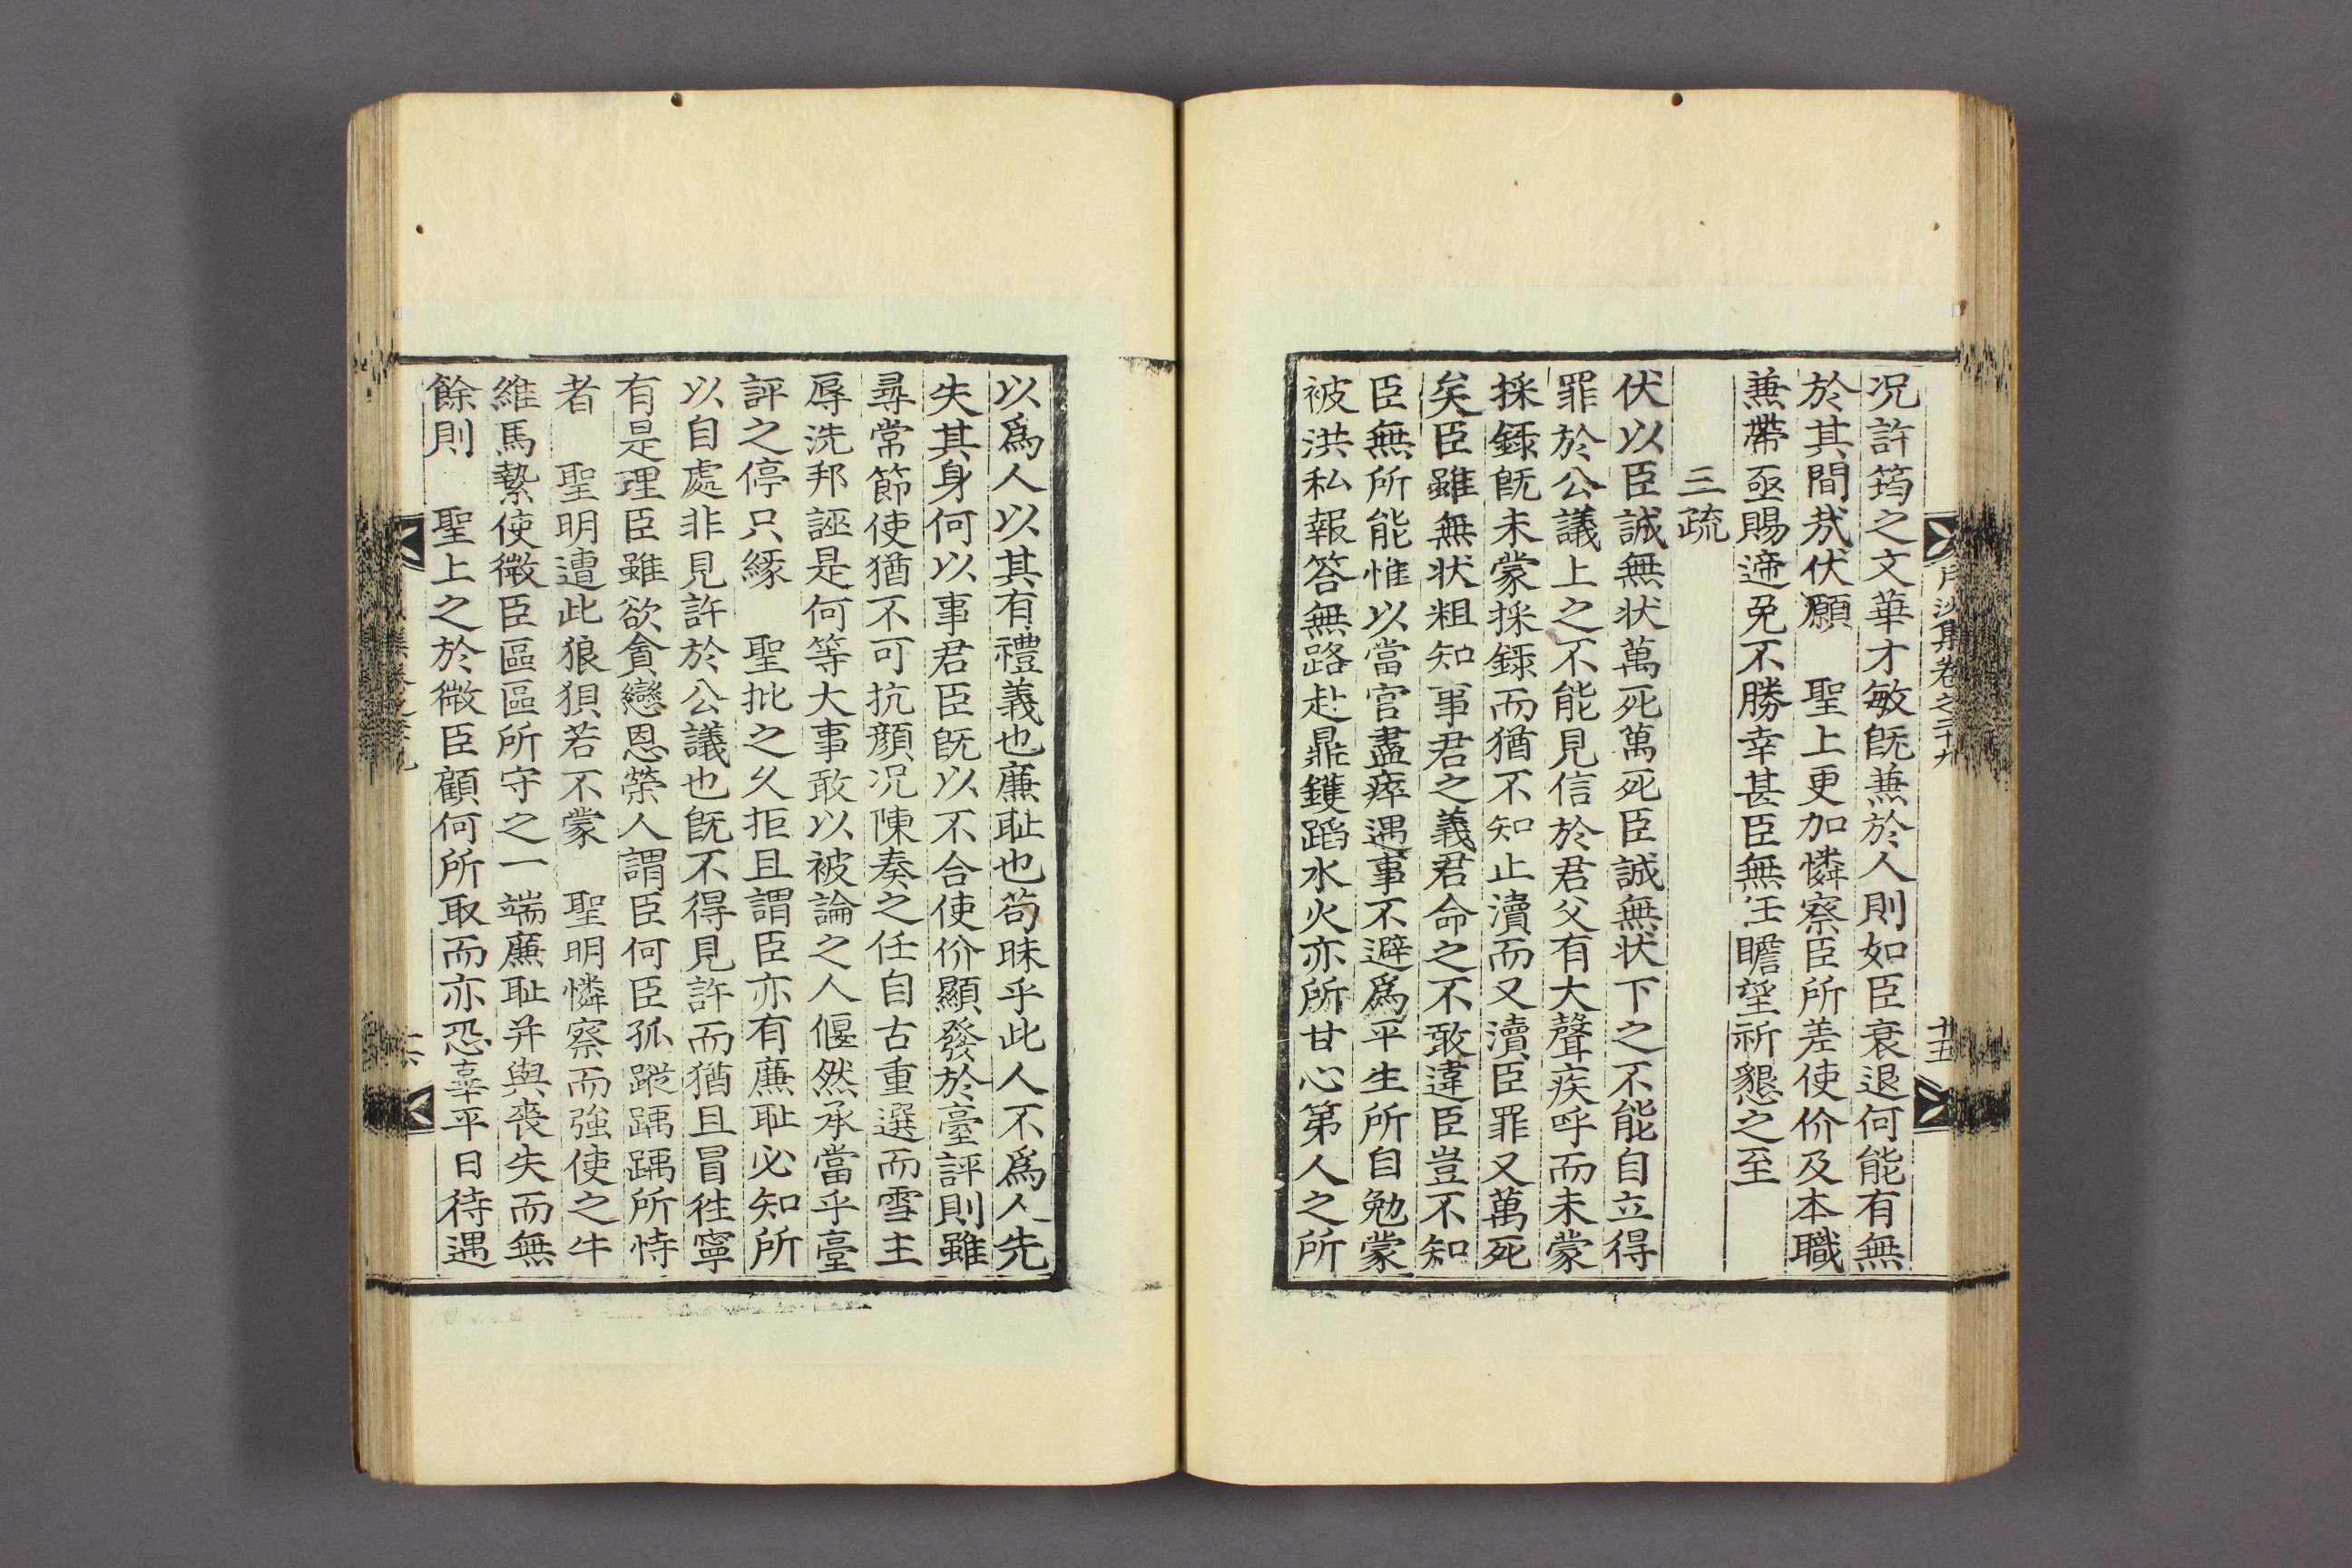 况許筠之文華才敏旣兼於人則如臣衰退何能有無
於其間㢤伏願　聖上更加憐察臣所差使价及本職
兼帶亟賜遞免不勝幸甚臣無任瞻望祈懇之至
三疏
伏以臣誠無状萬死萬死臣誠無状下之不能自立得
罪於公議上之不能見信於君父有大聲疾呼而未蒙
採錄旣未蒙採錄而猶不知止瀆而又瀆臣罪又萬死
矣臣雖無状粗知事君之義君命之不敢違臣豈不知
臣無所能惟以當官盡瘁遇事不避爲平生所自勉蒙
被洪私報答無路赴鼎鑊蹈水火亦所甘心第人之所
月沙集卷之三十九
十五
以爲人以其有禮義也廉耻也苟昧乎此人不爲人先
失其身何以事君臣旣以不合使价顯發於臺評則雖
尋常節使猶不可抗顔况陳奏之任自古重選而雪主
辱洗邦誣是何等大事敢以被論之人偃然承當乎臺
評之停只緣　聖批之久拒且謂臣亦有廉耻必知所
以自處非見許於公議也旣不得見許而猶且冒徃寧
有是理臣雖欲貪戀恩榮人謂臣何臣孤蹤踽踽所恃
者　聖明遭此狼狽若不蒙　聖明憐察而強使之牛
維馬縶使微臣區區所守之一端廉耻并與喪失而無
餘則　聖上之於微臣顧何所取而亦恐辜平日待遇